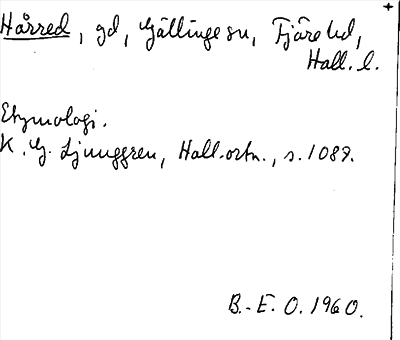 Hårred, gd, Gällinge sn, Fjäre hd,
Hall. l.
Etymologi.
K. G. Ljunggren, Hall. ortn., s. 108f.
B.-E. O. 1960.